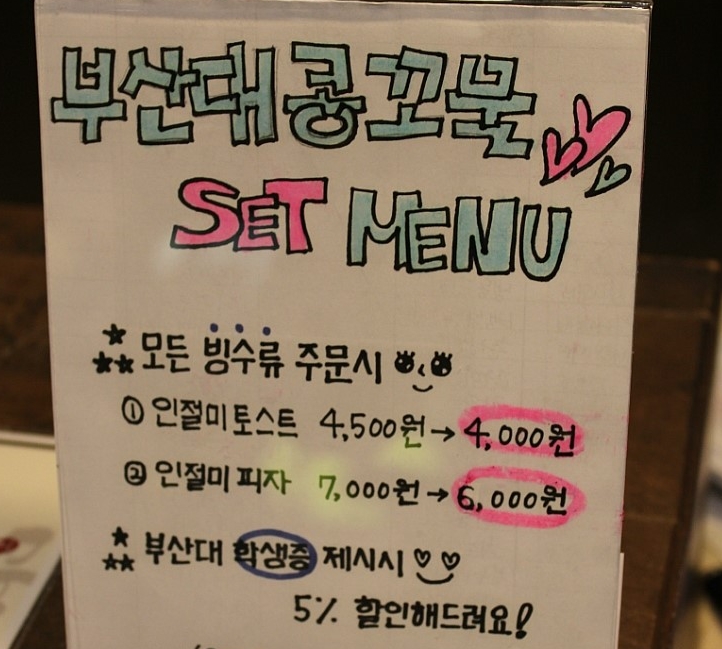 부산대콩고물
SET MENU
모든 빙수류 주문시
① 인절미토스트 4,500원→4,000원
② 인절미 피자 7,000원→6,000원
부산대 학생증 제시시
5% 할인해드려요!